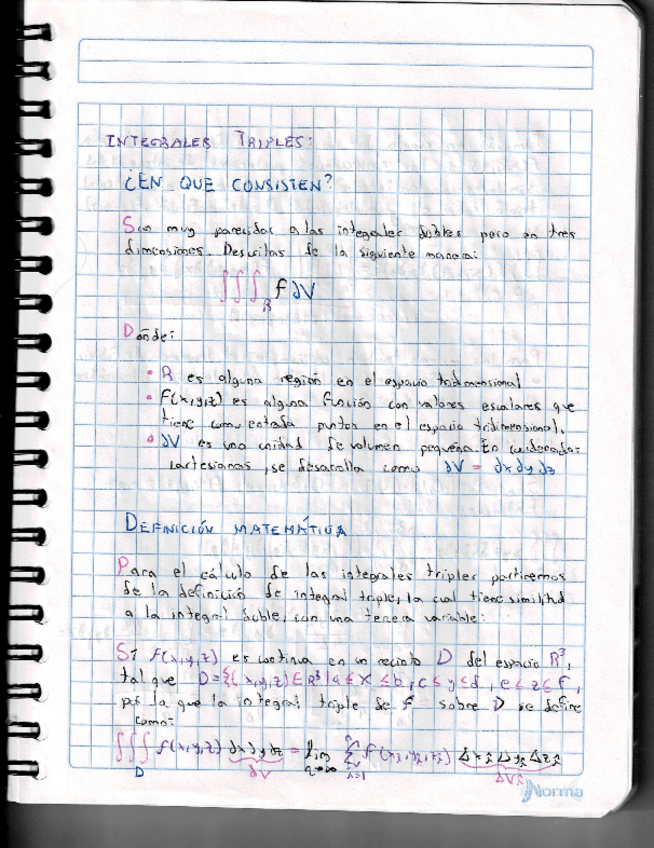 INTEGRALES TRIPLES:
¿EN QUE CONSISTEN?
Son muy parecidas a las integrales dobles pero en tres
dimensiones. Descritas de la siguiente manera:
∫∫∫_R f dV
Dónde:
• R es alguna región en el espacio tridimensional
• f(x,y,z) es alguna función con valores escalares que
tiene como entada puntos en el espacio tridimensional.
• dV es una unidad de volumen pequeña. En cordenadas
cartesianas, se desarolla como dV = dx dy dz
DEFINICIÓN MATEMÁTICA
Para el cálculo de las integrales triples partiremos
de la definición de integral triple, la cual tiene similitud
a la integral doble, con una tercera variable:
SI f(x,y,z) es continua en un recinto D del espacio R³,
tal que D={(x,y,z)∈R³|a≤x≤b, c≤y≤d, e≤z≤f,
por la que la integral triple de f sobre D se define
como:
∫∫∫ f(x,y,z) dx dy dz = lim Σ f(xi,yi,zi) Δxi Δyi Δzi
D dV n→∞ i=1 ΔVi
Norma